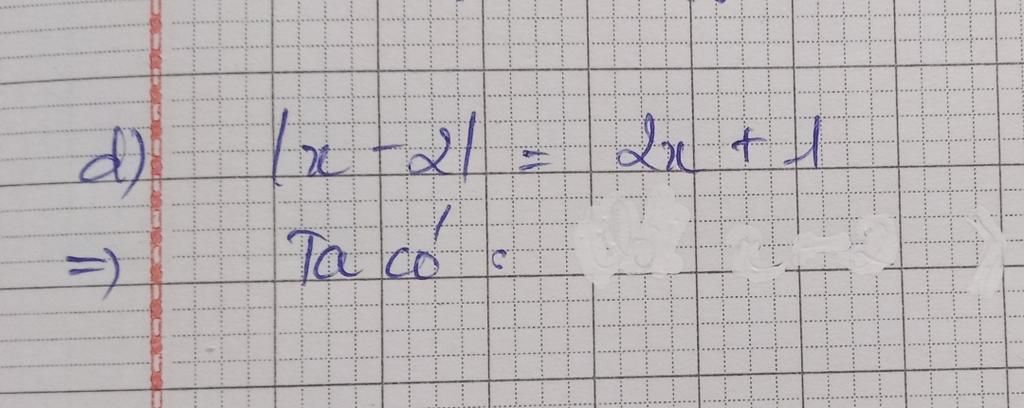 d) |x - 2| = 2x + 1
=) Ta có :